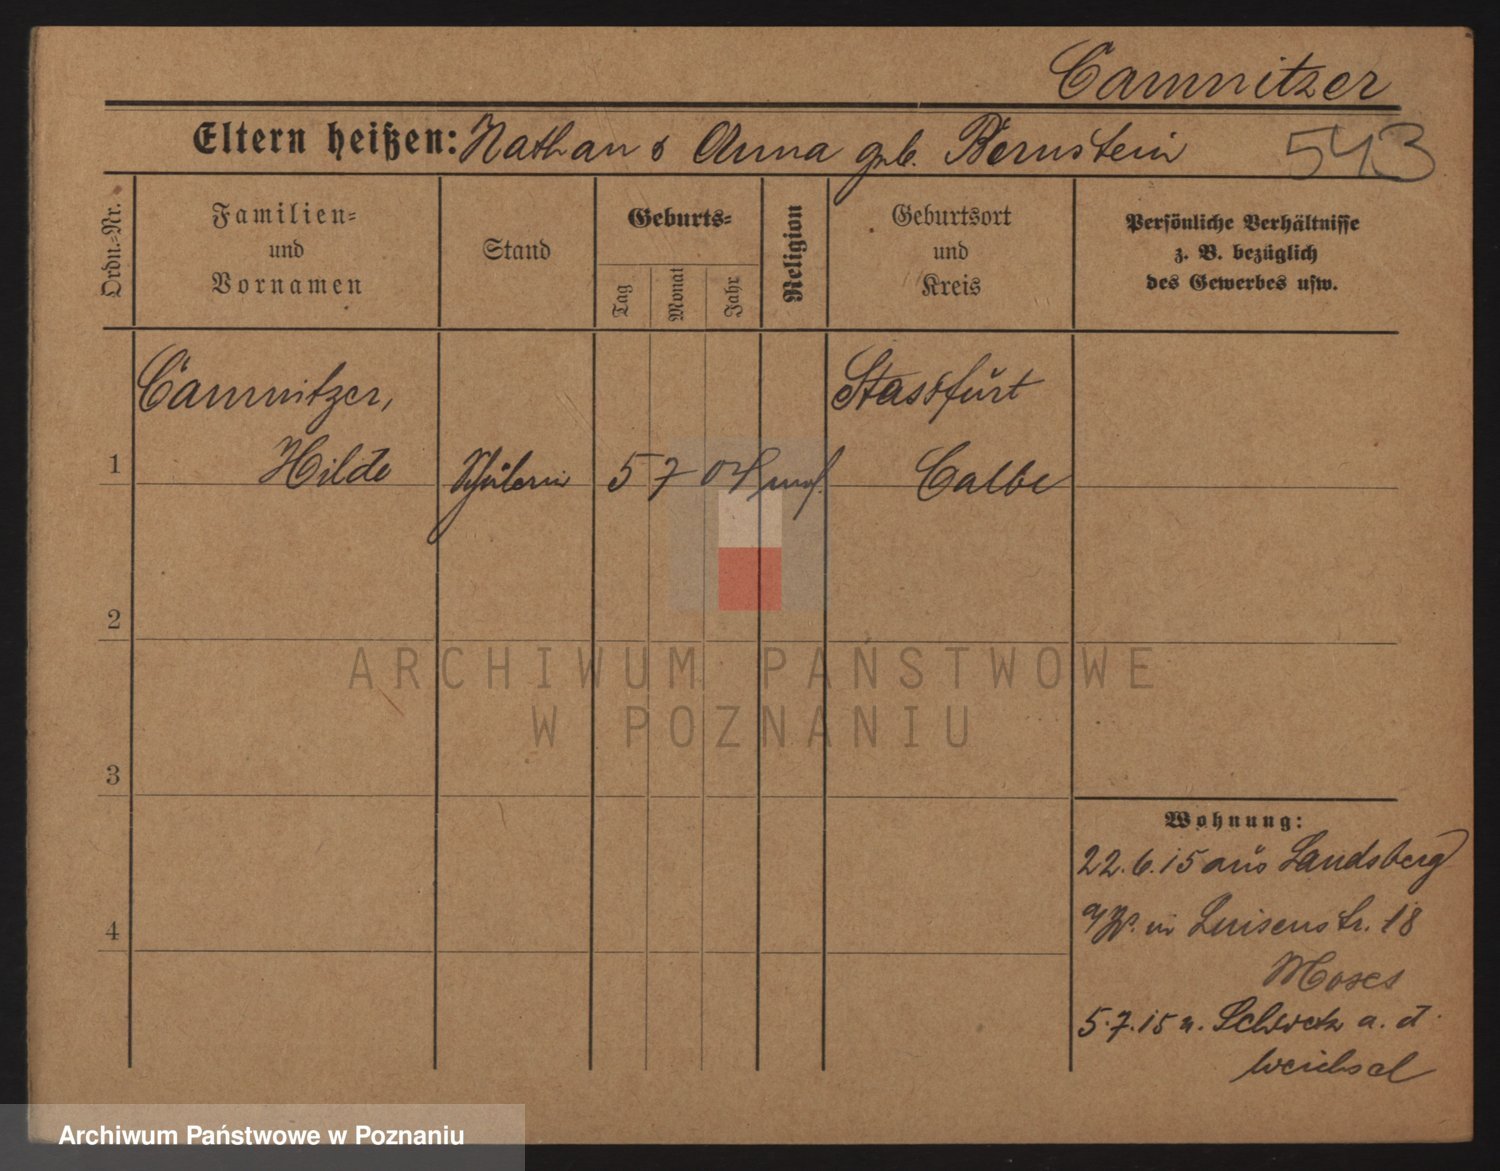 Camnitzer
Eltern heißen: Nathan & Anna geb. Bernstein
543
Ordn.-Nr.
Familien-
und
Vornamen
Stand
Geburts-
Tag
Monat
Jahr
Religion
Geburtsort
und
Kreis
Persönliche Verhältnisse
z. B. bezüglich
des Gewerbes usw.
Camnitzer, Stassfurt
1 Hilde Schülerin 5 7 04 mos. Calbe
2
ARCHIWUM PAŃSTWOWE
W POZNANIU
3
Wohnung:
22.6.15 aus Landsberg
a/W. in Luisenstr. 18
4
Moses
5.7.15 n. Schwetz a. d.
Weichsel
Archiwum Państwowe w Poznaniu